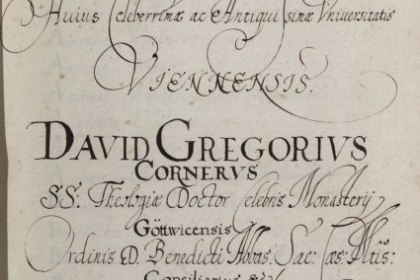 Huius Celeberrimæ ac Antiquissimæ Vniuersitatis
VIENNENSIS.
DAVID GREGORIVS
CORNERVS
SS. Theologiæ Doctor Celebris Monasterij
Göttwicensis
Ordinis D. Benedicti Abbas, Sac: Cæs: Mtis:
Consiliarius &c